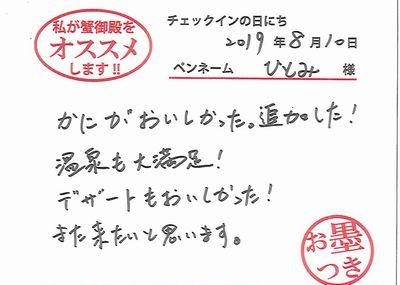 私が蟹御殿を
オススメ
します!!
チェックインの日にち
2019年8月10日
ペンネーム ひとみ 様
かにがおいしかった。追加した!
温泉も大満足!
デザートもおいしかった!
また来たいと思います。
お墨
つき